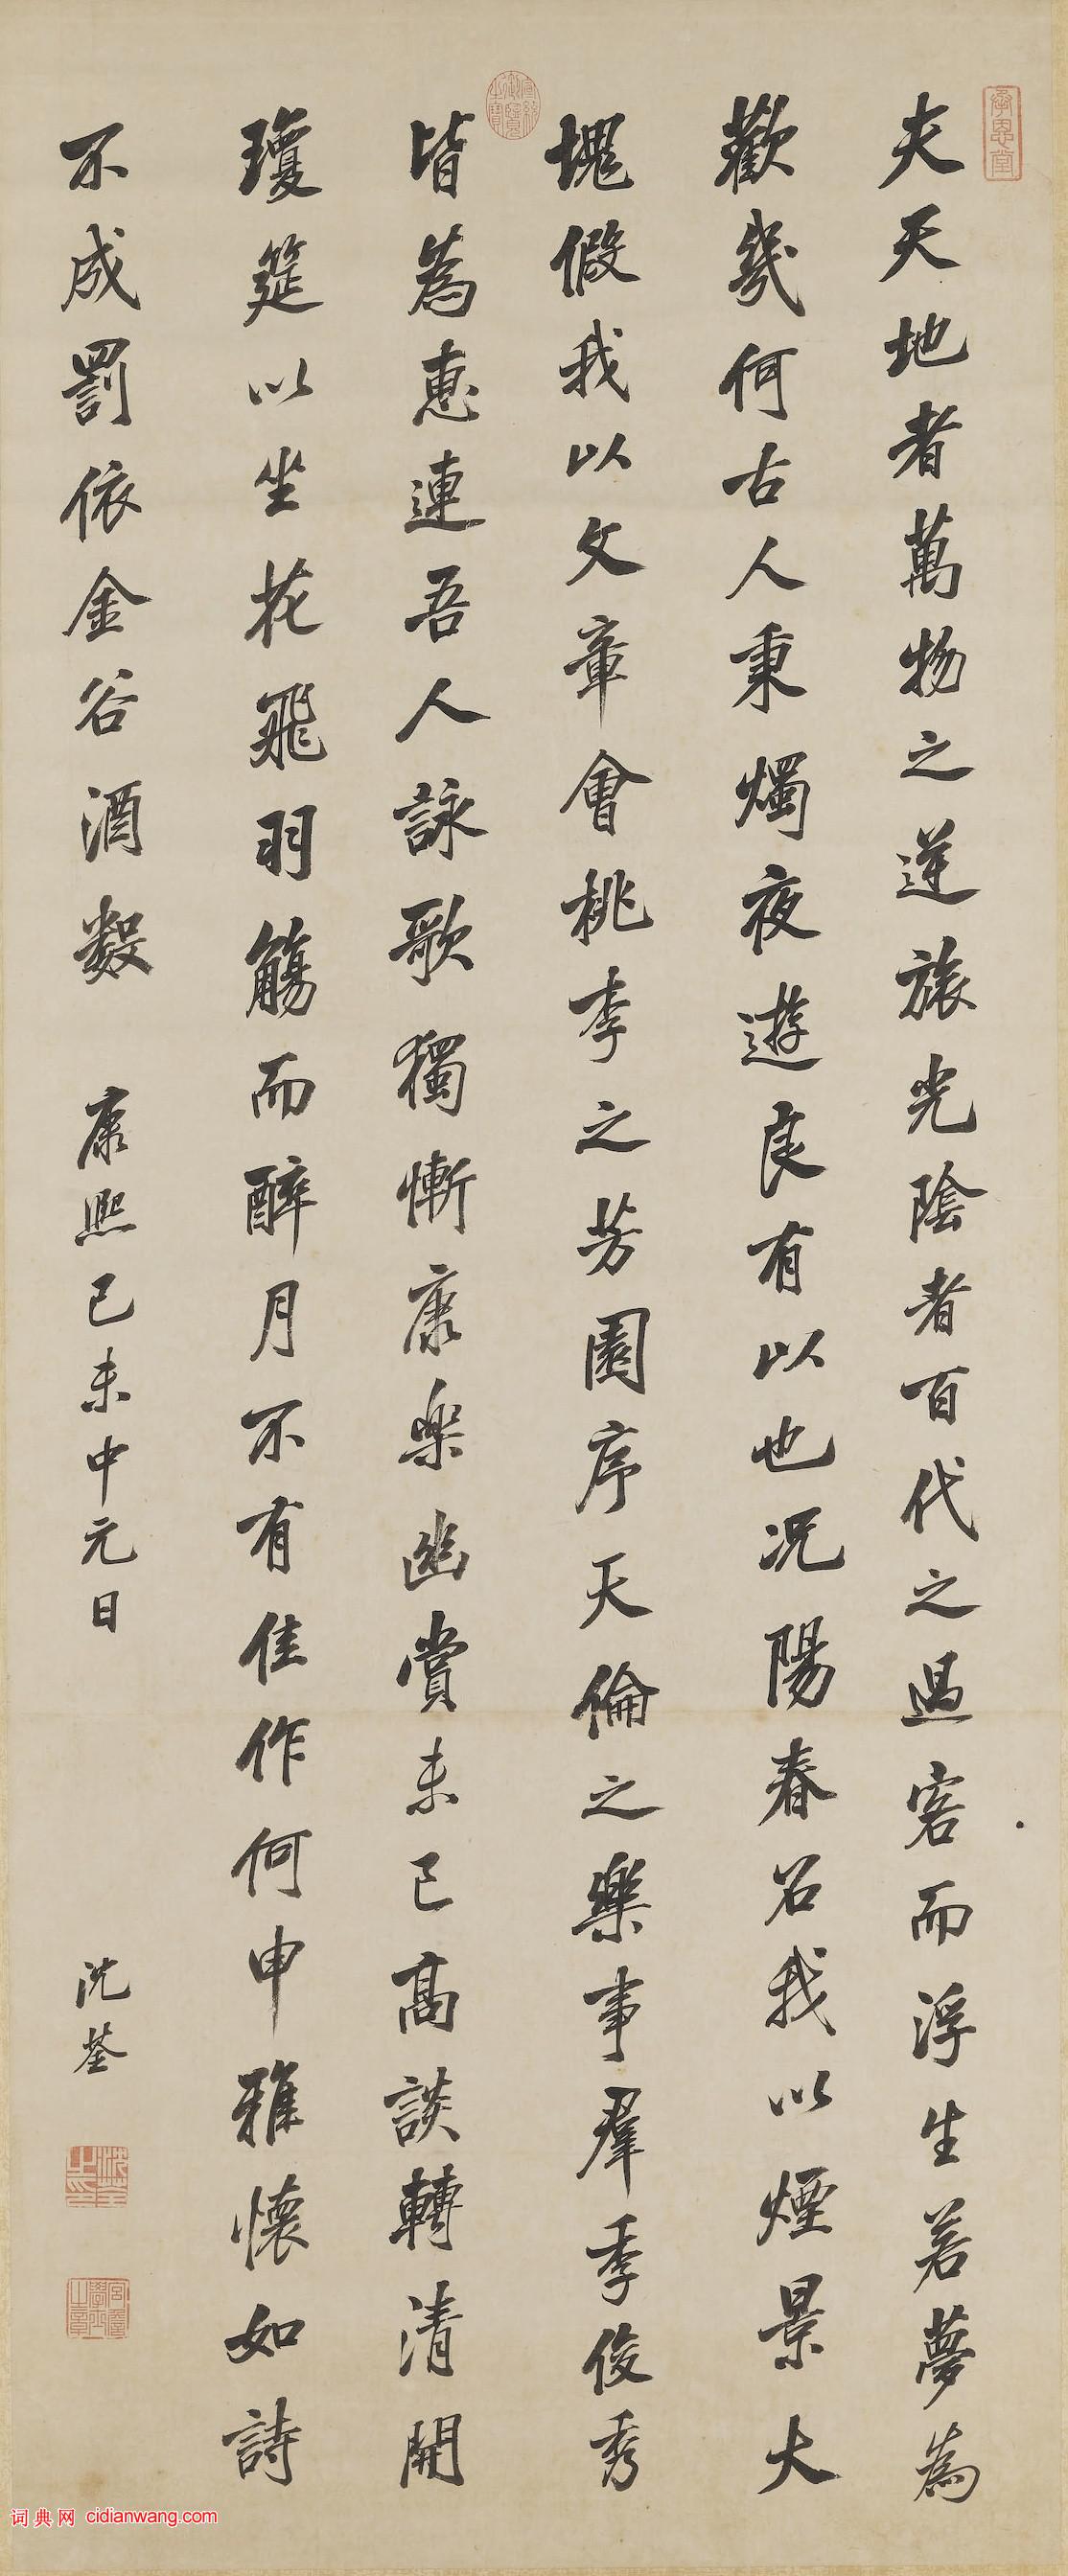 承恩堂
夫天地者萬物之逆旅光陰者百代之過客而浮生若夢為
歡幾何古人秉燭夜遊良有以也况陽春召我以煙景大
塊假我以文章會桃李之芳園序天倫之樂事羣季俊秀
宣統御覽之寶
皆為惠連吾人詠歌獨慚康樂幽賞未已高談轉清開
瓊筵以坐花飛羽觴而醉月不有佳作何申雅懷如詩
不成罰依金谷酒數 康熙己未中元日
沈荃
沈荃之印
宮詹學士之章
词典网 cidianwang.com